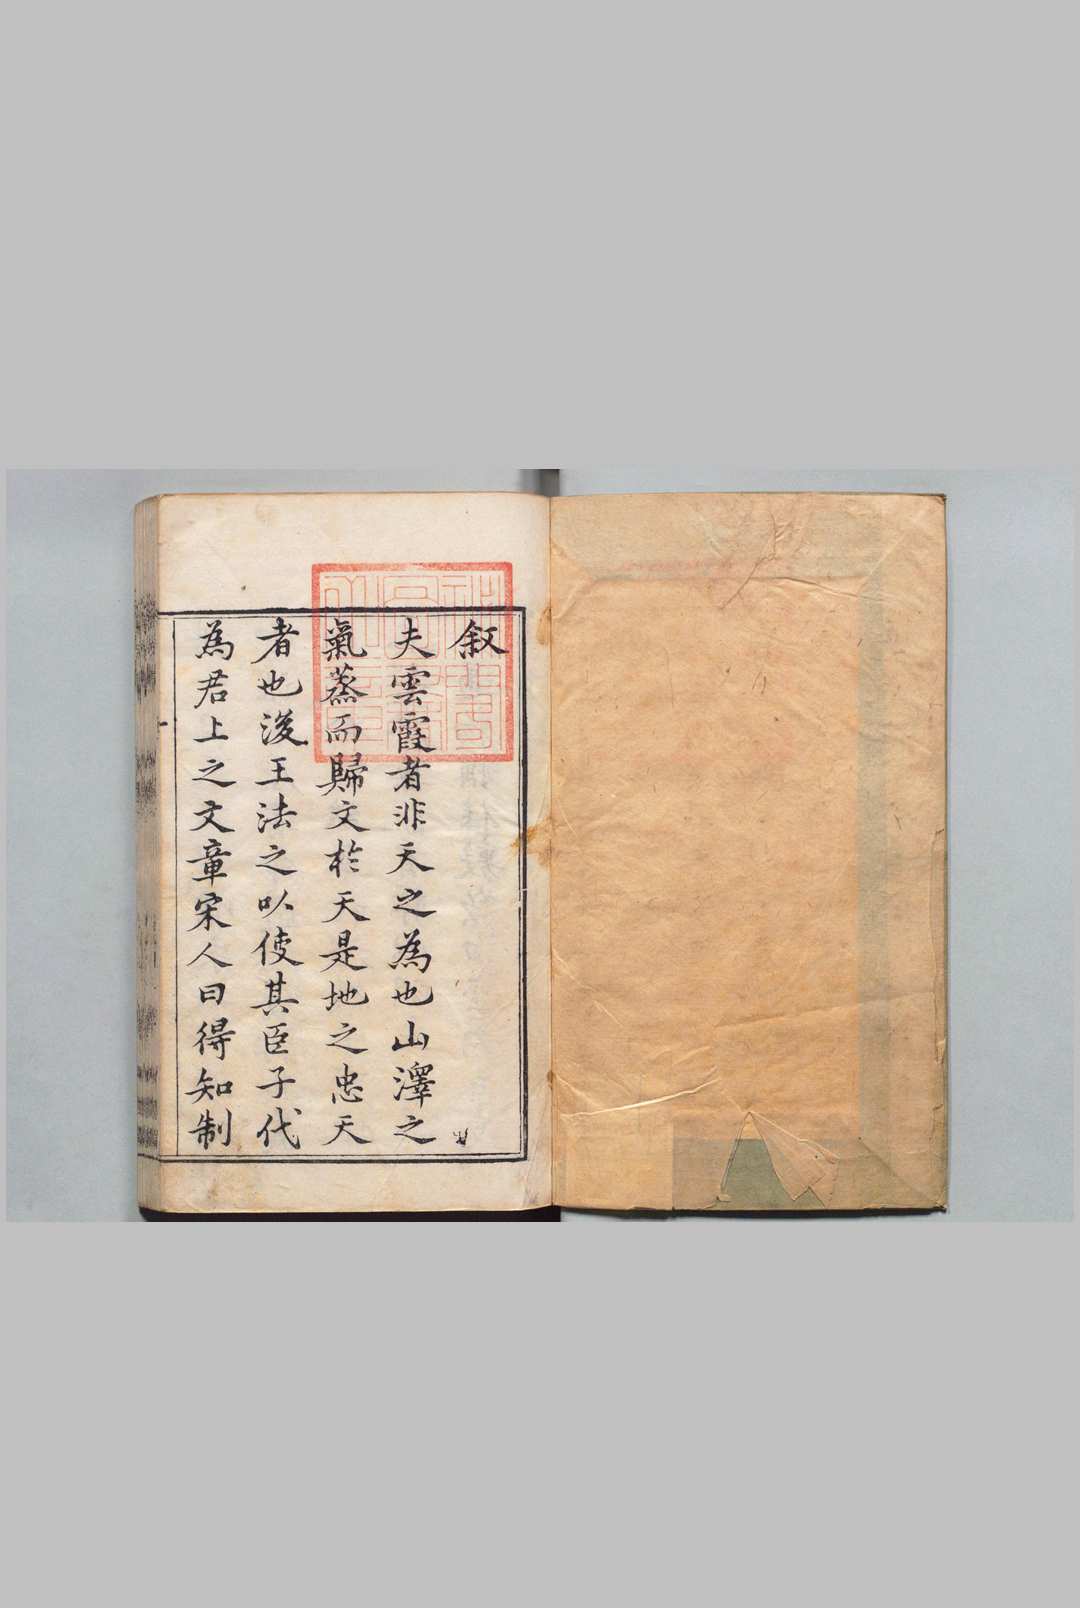 叙
夫雲霞者非天之為也山澤之
氣蒸而歸文於天是地之忠天
者也後王法之以使其臣子代
為君上之文章宋人曰得知制